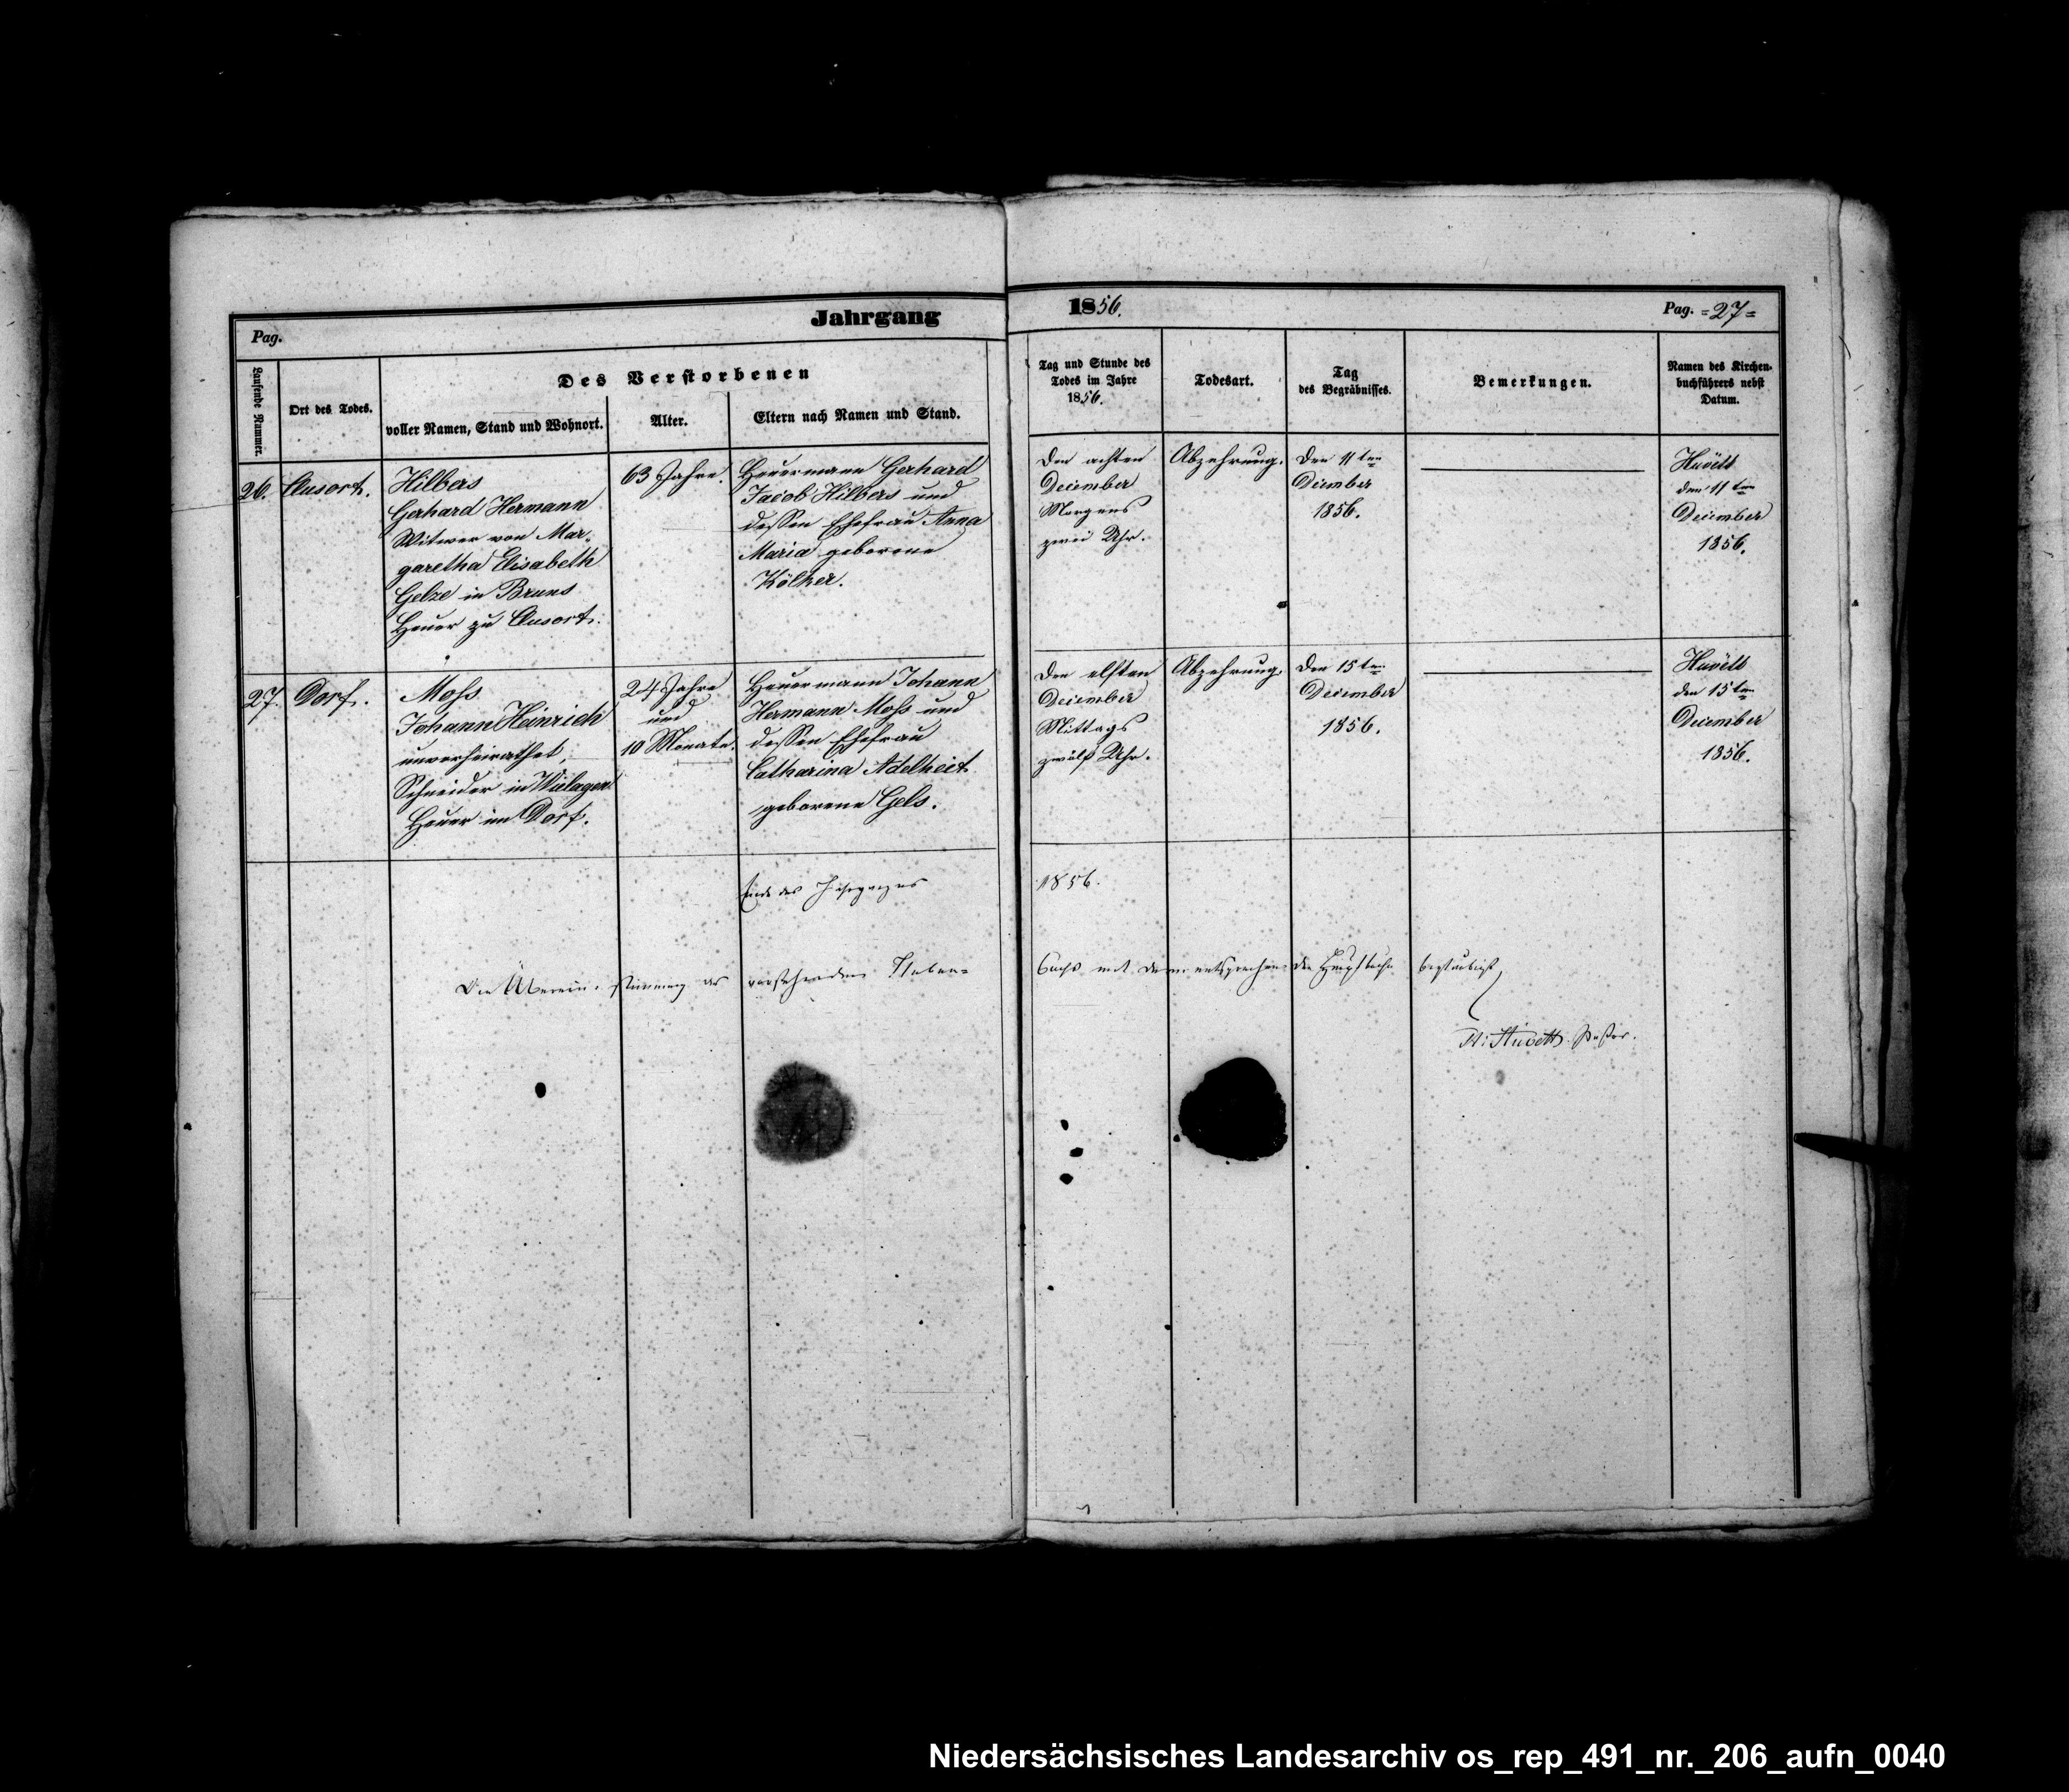 Jahrgang 1856.
Pag.
Pag. =27=
Laufende Nummer.
Ort des Todes.
Des Verstorbenen
voller Namen, Stand und Wohnort.
Alter.
Eltern nach Namen und Stand.
Tag und Stunde des
Todes im Jahre
1856.
Todesart.
Tag
des Begräbnisses.
Bemerkungen.
Namen des Kirchen-
buchführers nebst
Datum.
26.
Clusort.
Hilbers
Gerhard Hermann
Witwer von Mar-
garetha Elisabeth
Gelze in Bruns
Heuer zu Clusort.
63 Jahre.
Heuermann Gerhard
Jacob Hilbers und
dessen Ehefrau Anna
Maria geborene
Kölker.
Den achten
December
Morgens
zwei Uhr.
Abzehrung.
Den 11ten
December
1856.
Huvett
den 11ten
December
1856.
27.
Dorf.
Moſs
Johann Heinrich
unverheirathet,
Schneider in Wielagen
Heuer im Dorf.
24 Jahre
und
10 Monate.
Heuermann Johann
Hermann Moſs und
dessen Ehefrau
Catharina Adelheit
geborene Gels.
Den elften
December
Mittags
zwölf Uhr.
Abzehrung.
Den 15ten
December
1856.
Huvett
den 15ten
December
1856.
Ende des Jahrganges 1856.
Die Übereinstimmung des vorstehenden Neben-
buchs mit dem entsprechenden Hauptbuche beglaubigt
Huvett Pastor.
Niedersächsisches Landesarchiv os_rep_491_nr._206_aufn_0040